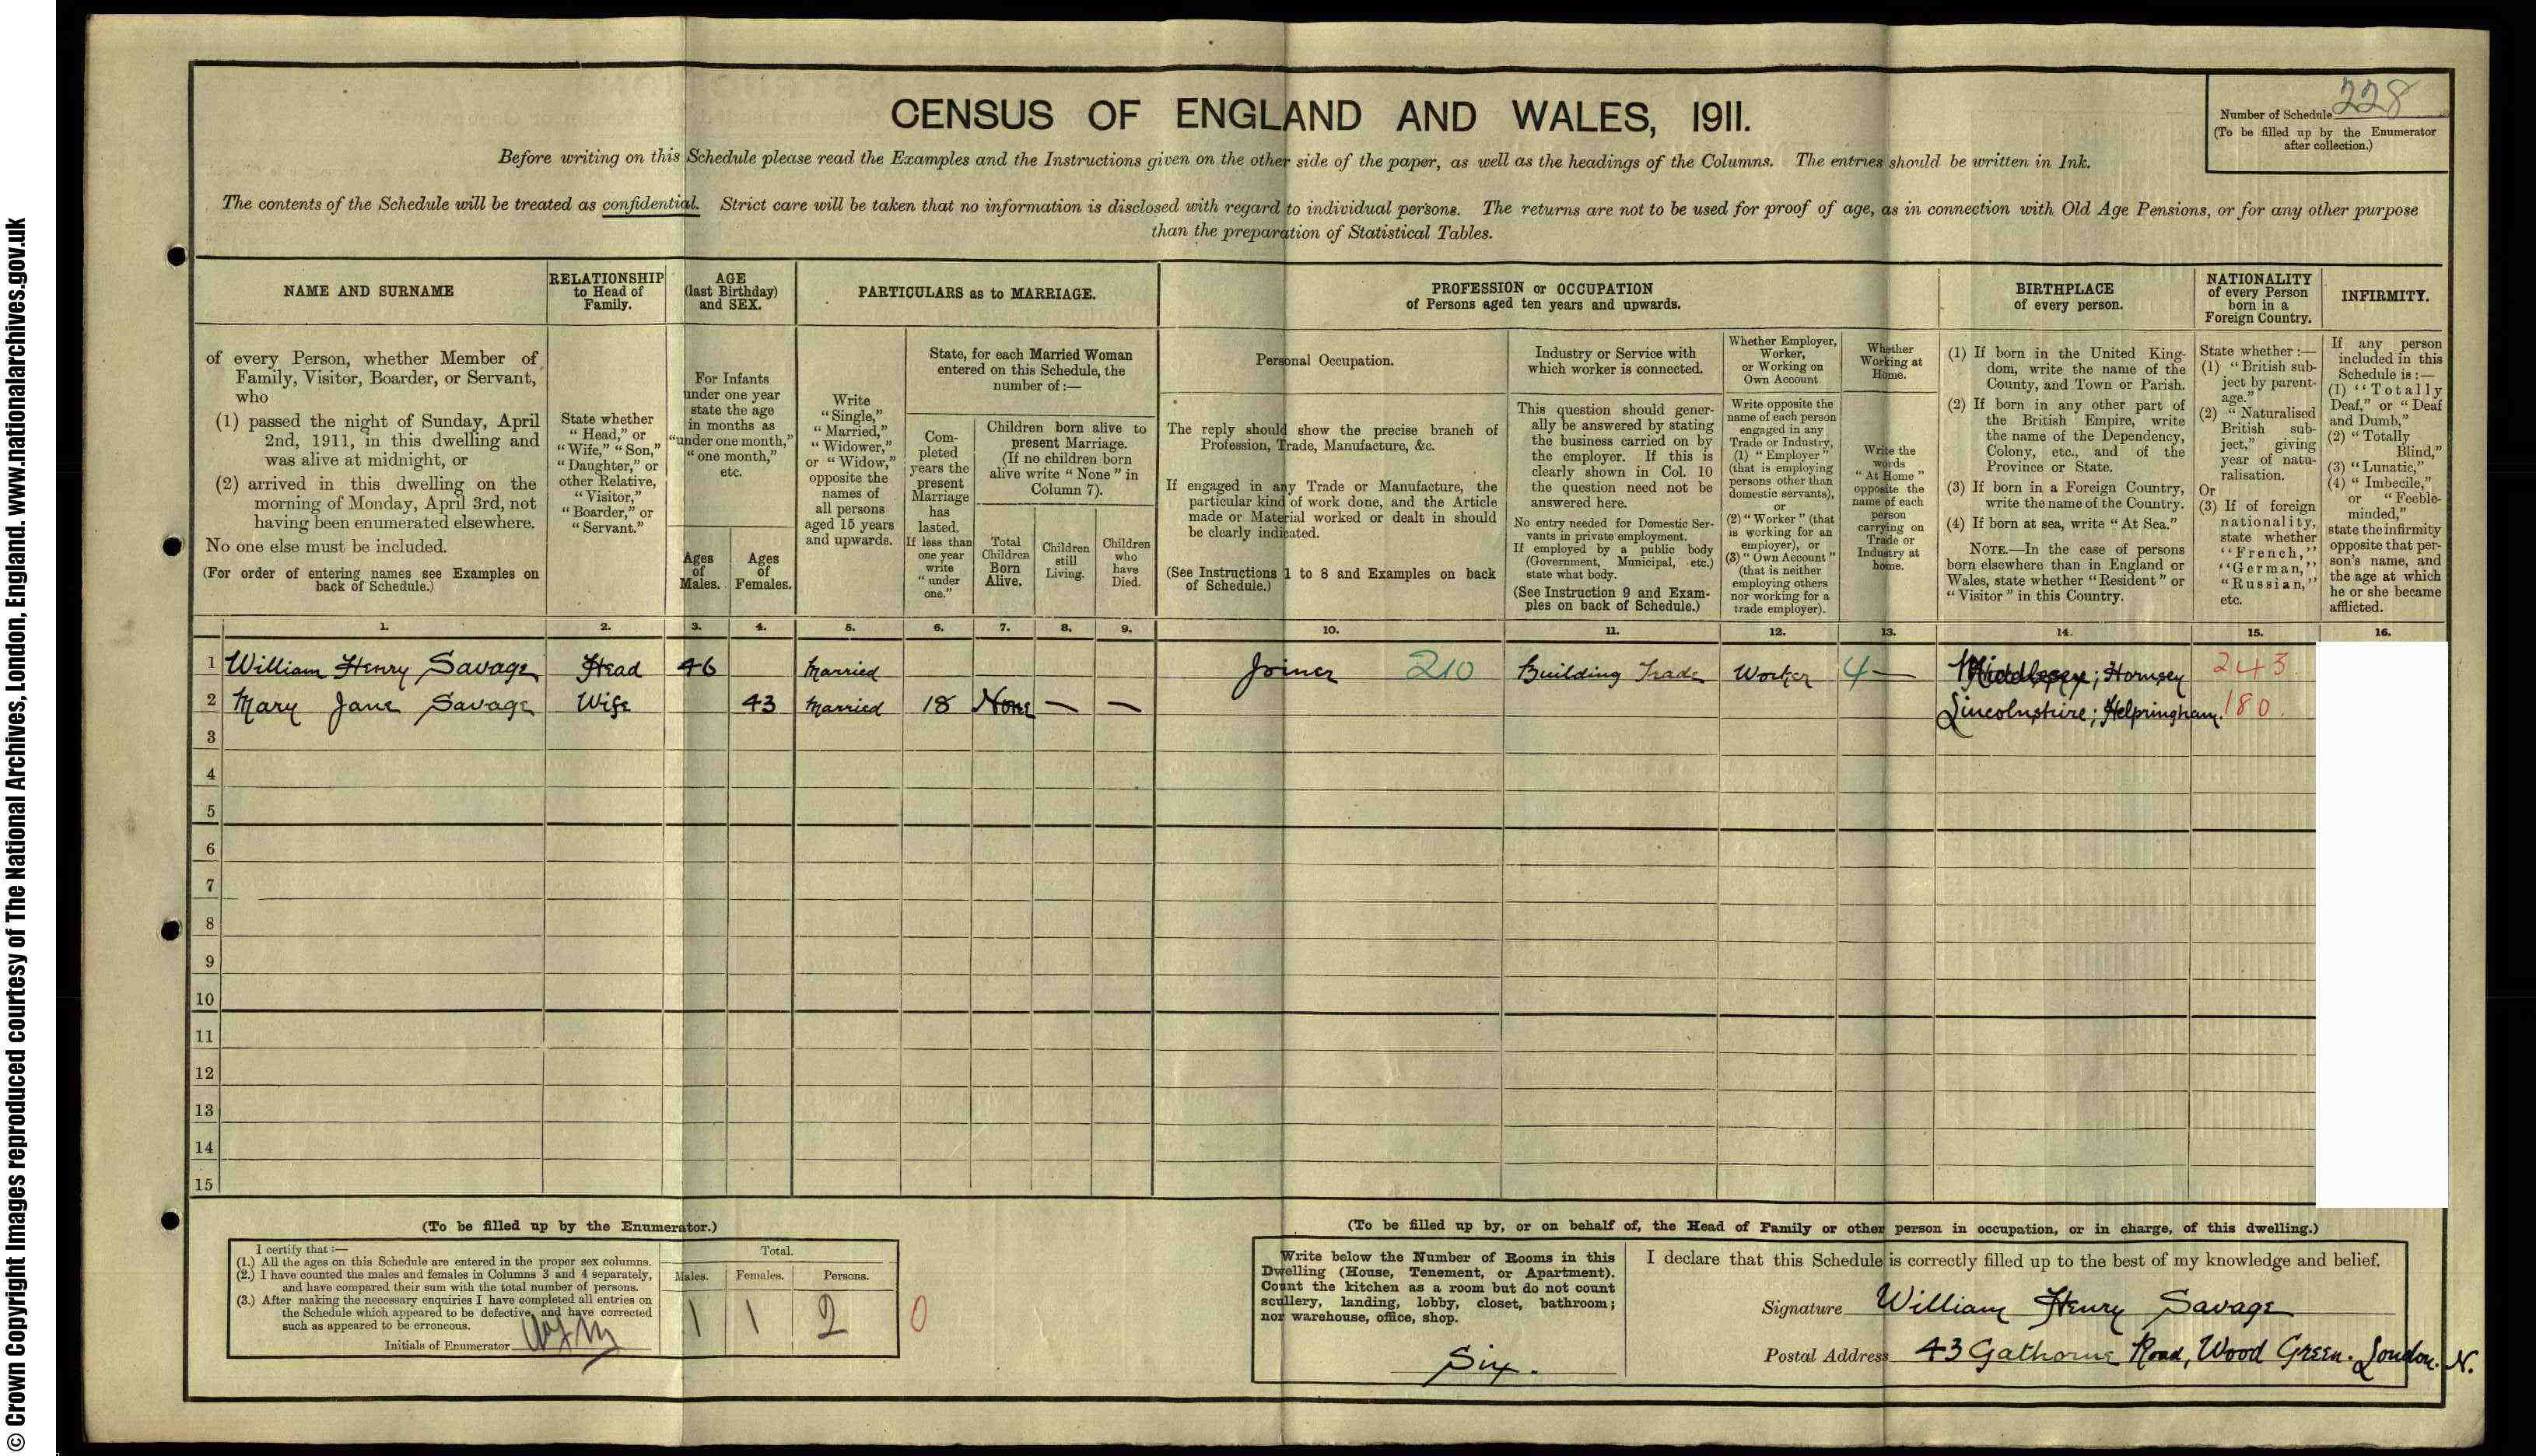 © Crown Copyright Images reproduced courtesy of The National Archives, London, England. www.nationalarchives.gov.uk
CENSUS OF ENGLAND AND WALES, 1911.
Number of Schedule 228
(To be filled up by the Enumerator
after collection.)
Before writing on this Schedule please read the Examples and the Instructions given on the other side of the paper, as well as the headings of the Columns. The entries should be written in Ink.
The contents of the Schedule will be treated as confidential. Strict care will be taken that no information is disclosed with regard to individual persons. The returns are not to be used for proof of age, as in connection with Old Age Pensions, or for any other purpose
than the preparation of Statistical Tables.
NAME AND SURNAME
of every Person, whether Member of
Family, Visitor, Boarder, or Servant,
who
(1) passed the night of Sunday, April
2nd, 1911, in this dwelling and
was alive at midnight, or
(2) arrived in this dwelling on the
morning of Monday, April 3rd, not
having been enumerated elsewhere.
No one else must be included.
(For order of entering names see Examples on
back of Schedule.)
RELATIONSHIP
to Head of
Family.
State whether
"Head," or
"Wife," "Son,"
"Daughter," or
other Relative,
"Visitor,"
"Boarder," or
"Servant."
AGE
(last Birthday)
and SEX.
For Infants
under one year
state the age
in months as
"under one month,"
"one month,"
etc.
Ages
of
Males.
Ages
of
Females.
PARTICULARS as to MARRIAGE.
Write
"Single,"
"Married,"
"Widower,"
or "Widow,"
opposite the
names of
all persons
aged 15 years
and upwards.
State, for each Married Woman
entered on this Schedule, the
number of :—
Com-
pleted
years the
present
Marriage
has
lasted.
If less than
one year
write
"under
one."
Children born alive to
present Marriage.
(If no children born
alive write "None" in
Column 7).
Total
Children
Born
Alive.
Children
still
Living.
Children
who
have
Died.
PROFESSION or OCCUPATION
of Persons aged ten years and upwards.
Personal Occupation.
The reply should show the precise branch of
Profession, Trade, Manufacture, &c.
If engaged in any Trade or Manufacture, the
particular kind of work done, and the Article
made or Material worked or dealt in should
be clearly indicated.
(See Instructions 1 to 8 and Examples on back
of Schedule.)
Industry or Service with
which worker is connected.
This question should gener-
ally be answered by stating
the business carried on by
the employer. If this is
clearly shown in Col. 10
the question need not be
answered here.
No entry needed for Domestic Ser-
vants in private employment.
If employed by a public body
(Government, Municipal, etc.)
state what body.
(See Instruction 9 and Exam-
ples on back of Schedule.)
Whether Employer,
Worker,
or Working on
Own Account
Write opposite the
name of each person
engaged in any
Trade or Industry,
(1) "Employer"
(that is employing
persons other than
domestic servants),
or
(2) "Worker" (that
is working for an
employer), or
(3) "Own Account"
(that is neither
employing others
nor working for a
trade employer).
Whether
Working at
Home.
Write the
words
"At Home"
opposite the
name of each
person
carrying on
Trade or
Industry at
home.
BIRTHPLACE
of every person.
(1) If born in the United King-
dom, write the name of the
County, and Town or Parish.
(2) If born in any other part of
the British Empire, write
the name of the Dependency,
Colony, etc., and of the
Province or State.
(3) If born in a Foreign Country,
write the name of the Country.
(4) If born at sea, write "At Sea."
NOTE.—In the case of persons
born elsewhere than in England or
Wales, state whether "Resident" or
"Visitor" in this Country.
NATIONALITY
of every Person
born in a
Foreign Country.
State whether :—
(1) "British sub-
ject by parent-
age."
(2) "Naturalised
British sub-
ject," giving
year of natu-
ralisation.
Or
(3) If of foreign
nationality,
state whether
"French,"
"German,"
"Russian,"
etc.
INFIRMITY.
If any person
included in this
Schedule is :—
(1) "Totally
Deaf," or "Deaf
and Dumb,"
(2) "Totally
Blind,"
(3) "Lunatic,"
(4) "Imbecile,"
or "Feeble-
minded,"
state the infirmity
opposite that per-
son's name, and
the age at which
he or she became
afflicted.
1. 2. 3. 4. 5. 6. 7. 8. 9. 10. 11. 12. 13. 14. 15. 16.
1 William Henry Savage Head 46 Married Joiner 210 Building Trade Worker 4 — Middlesex; Hornsey 243
2 Mary Jane Savage Wife 43 Married 18 None — — Lincolnshire; Helpringham. 180.
3
4
5
6
7
8
9
10
11
12
13
14
15
(To be filled up by the Enumerator.)
I certify that :—
(1.) All the ages on this Schedule are entered in the proper sex columns.
(2.) I have counted the males and females in Columns 3 and 4 separately,
and have compared their sum with the total number of persons.
(3.) After making the necessary enquiries I have completed all entries on
the Schedule which appeared to be defective, and have corrected
such as appeared to be erroneous.
Initials of Enumerator
Total.
Males. Females. Persons.
1 1 2 0
(To be filled up by, or on behalf of, the Head of Family or other person in occupation, or in charge, of this dwelling.)
Write below the Number of Rooms in this
Dwelling (House, Tenement, or Apartment).
Count the kitchen as a room but do not count
scullery, landing, lobby, closet, bathroom;
nor warehouse, office, shop.
Six.
I declare that this Schedule is correctly filled up to the best of my knowledge and belief.
Signature William Henry Savage
Postal Address 43 Gathorne Road, Wood Green. London. N.